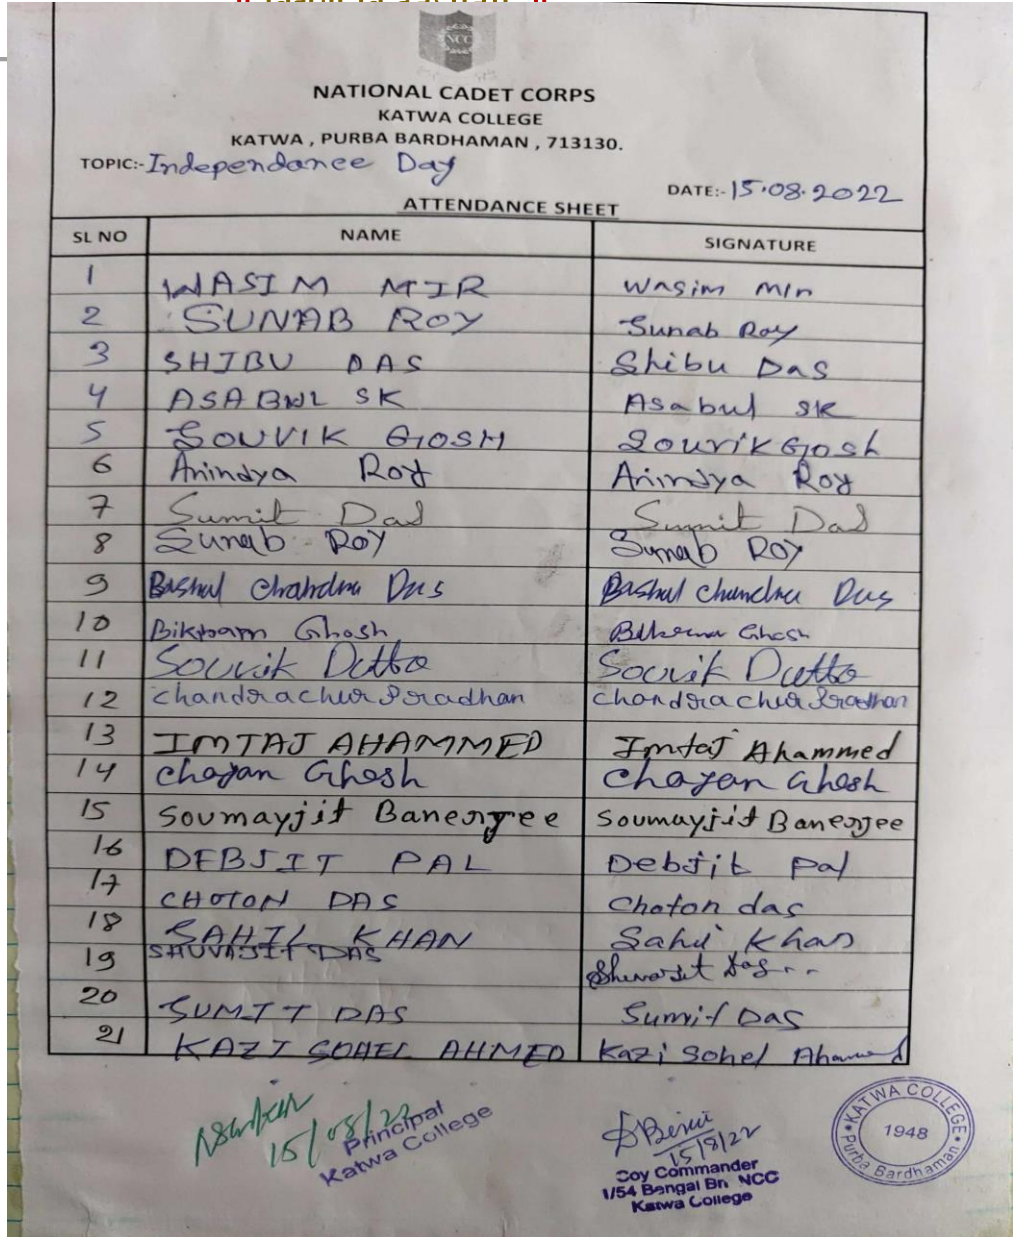 NCC
NATIONAL CADET CORPS
KATWA COLLEGE
KATWA , PURBA BARDHAMAN , 713130.
TOPIC:- Independance Day
DATE:- 15.08.2022
ATTENDANCE SHEET
SL NO NAME SIGNATURE
1 WASIM MIR Wasim Mir
2 SUNAB ROY Sunab Roy
3 SHIBU DAS Shibu Das
4 ASABUL SK Asabul SK
5 SOUVIK GIOSH Sourik Giosh
6 Anindya Roy Anindya Roy
7 Sumit Das Sumit Das
8 Sunab Roy Sunab Roy
9 Bashul Chandra Das Bashul Chandra Das
10 Bikram Ghosh Ghosh
11 Souvik Dutta Souvik Dutta
12 Chandrachur Pradhan Chandrachur Pradhan
13 IMTAJ AHAMMED Imtaj Ahammed
14 Chayan Ghosh Chayan Ghosh
15 Soumayjit Banerjee Soumayjit Banerjee
16 DEBJIT PAL Debjit Pal
17 CHOTON DAS Choton das
18 SAHIL KHAN Sahil Khan
19 SHUVAJIT DAS Shuvajit Das..
20 SUMIT DAS Sumit Das
21 KAZI SOHEL AHMED Kazi Sohel Ahamed
15/08/22
Principal
Katwa College
15/8/22
Coy Commander
1/54 Bengal Bn NCC
Katwa College
KATWA COLLEGE
1948
Purba Bardhaman